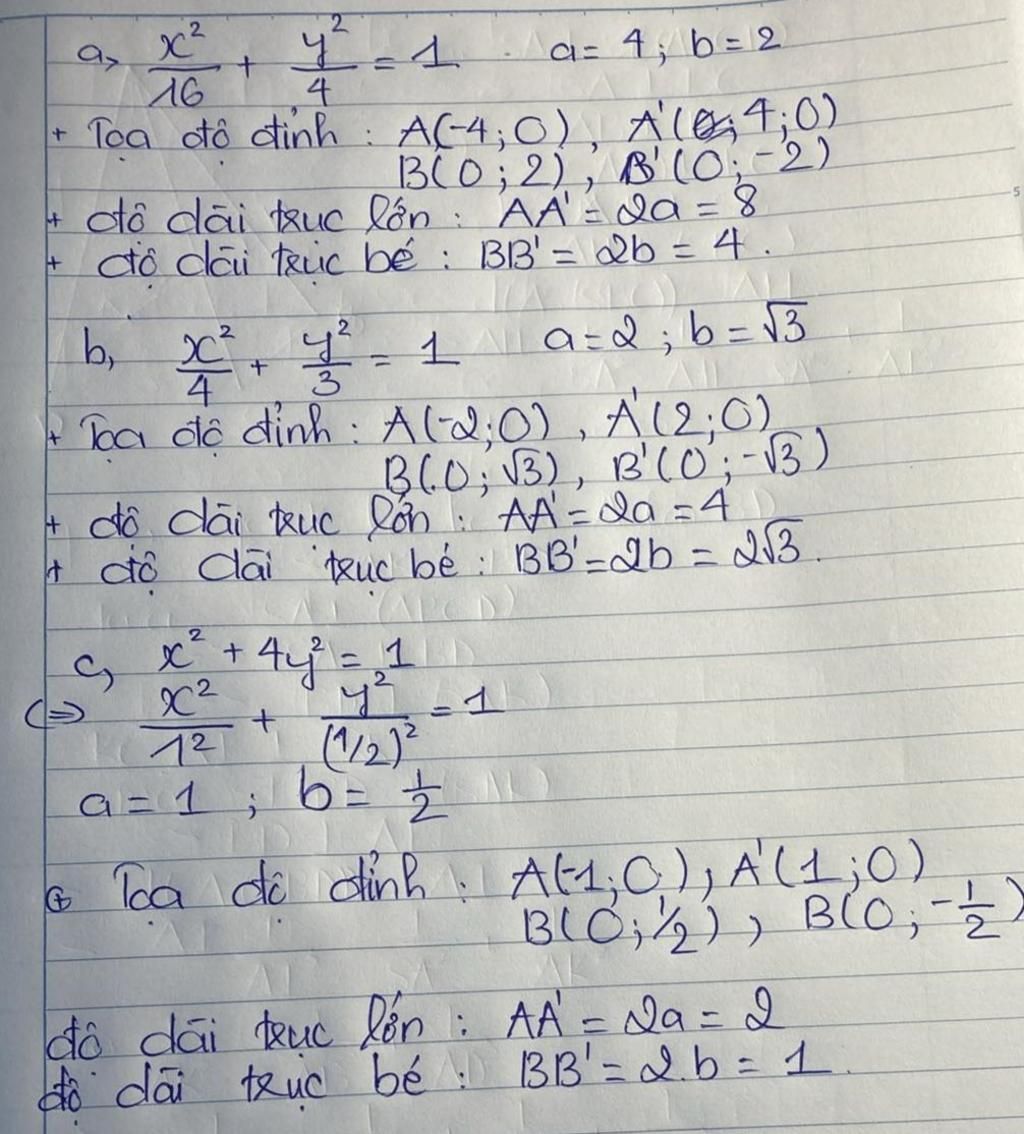 a, x²/16 + y²/4 = 1 a = 4; b = 2
+ Tọa độ đỉnh : A(-4;0), A'(4;0)
B(0;2), B'(0;-2)
+ độ dài trục lớn : AA' = 2a = 8
+ độ dài trục bé : BB' = 2b = 4.
b, x²/4 + y²/3 = 1 a = 2; b = √3
+ Tọa độ đỉnh : A(-2;0), A'(2;0)
B(0;√3), B'(0;-√3)
+ độ dài trục lớn : AA' = 2a = 4
+ độ dài trục bé : BB' = 2b = 2√3.
c, x² + 4y² = 1
<=> x²/1² + y²/(1/2)² = 1
a = 1 ; b = 1/2
+ Tọa độ đỉnh : A(-1;0), A'(1;0)
B(0;1/2), B(0;-1/2)
độ dài trục lớn : AA' = 2a = 2
độ dài trục bé : BB' = 2.b = 1.